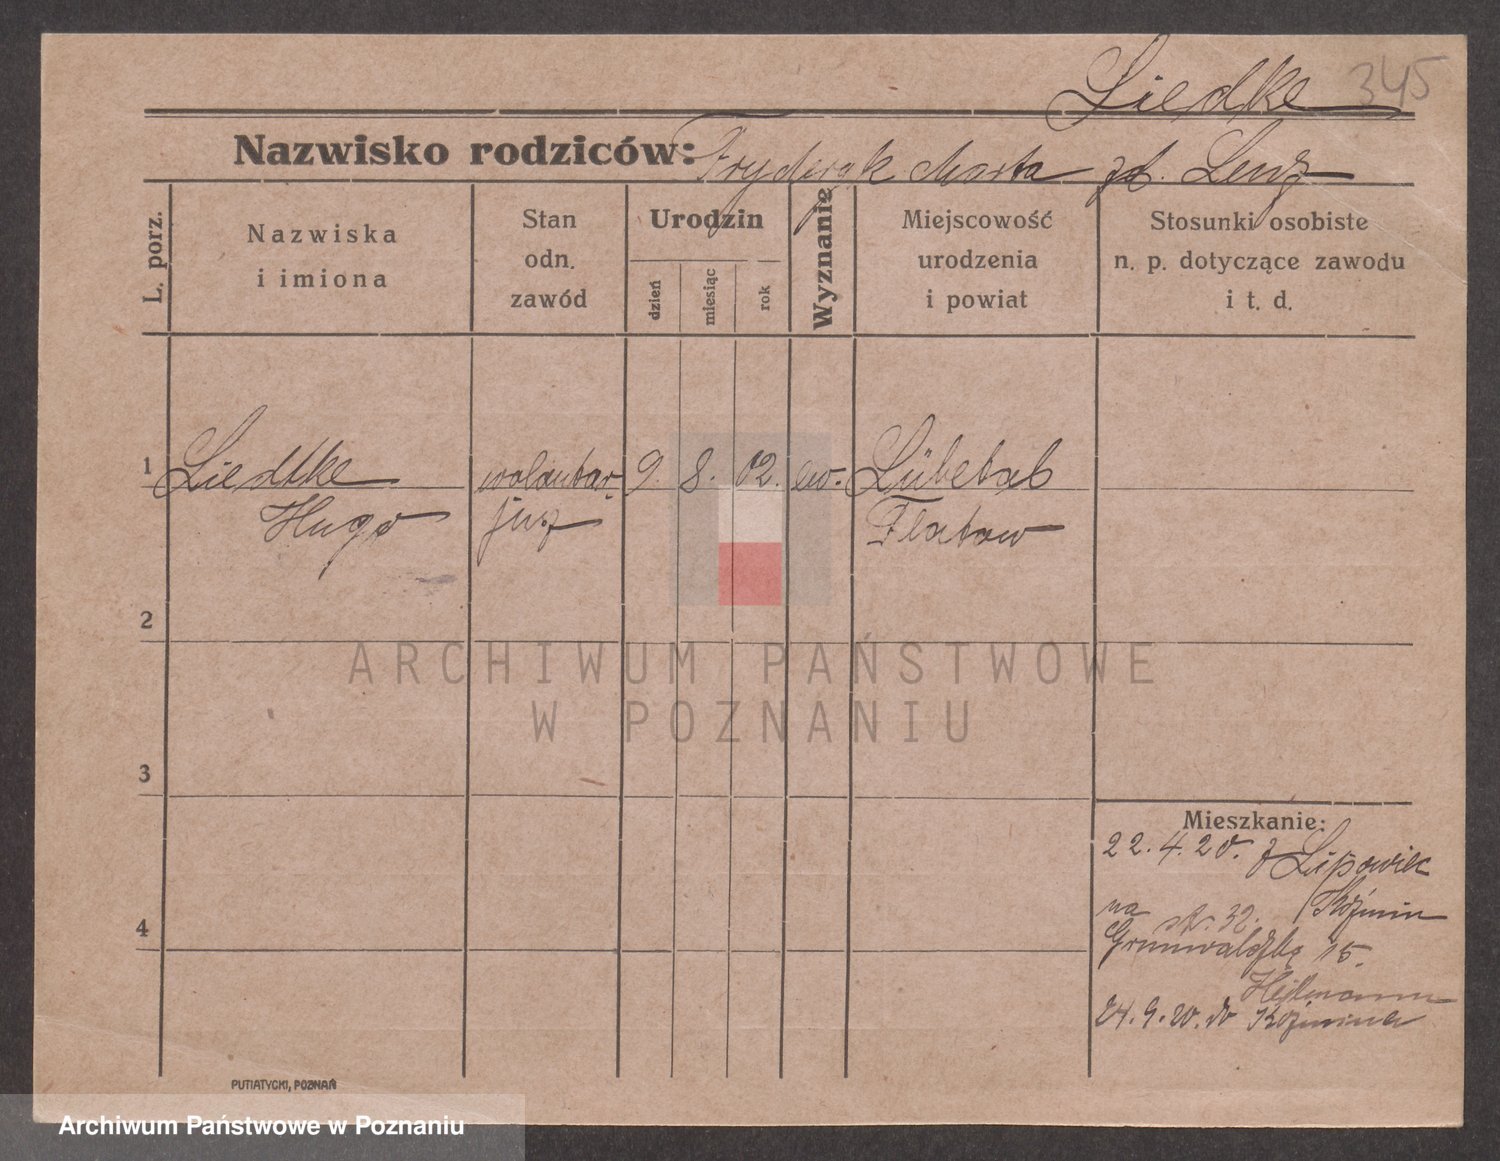 345
Liedke
Nazwisko rodziców: Fryderyk Marta zd. Lenz
L. porz.
Nazwiska
i imiona
Stan
odn.
zawód
Urodzin
dzień
miesiąc
rok
Wyznanie
Miejscowość
urodzenia
i powiat
Stosunki osobiste
n. p. dotyczące zawodu
i t. d.
1 Liedtke 9. 8. 02. ew. Lübetal
Hugo Flatow
2
3
4
Mieszkanie:
22.4.20. z Lipowiec
Koźmin
na str. 32.
Grunwaldzką 15.
24.9.20. do Koźmina
PUTIATYCKI, POZNAŃ
ARCHIWUM PAŃSTWOWE
W POZNANIU
Archiwum Państwowe w Poznaniu